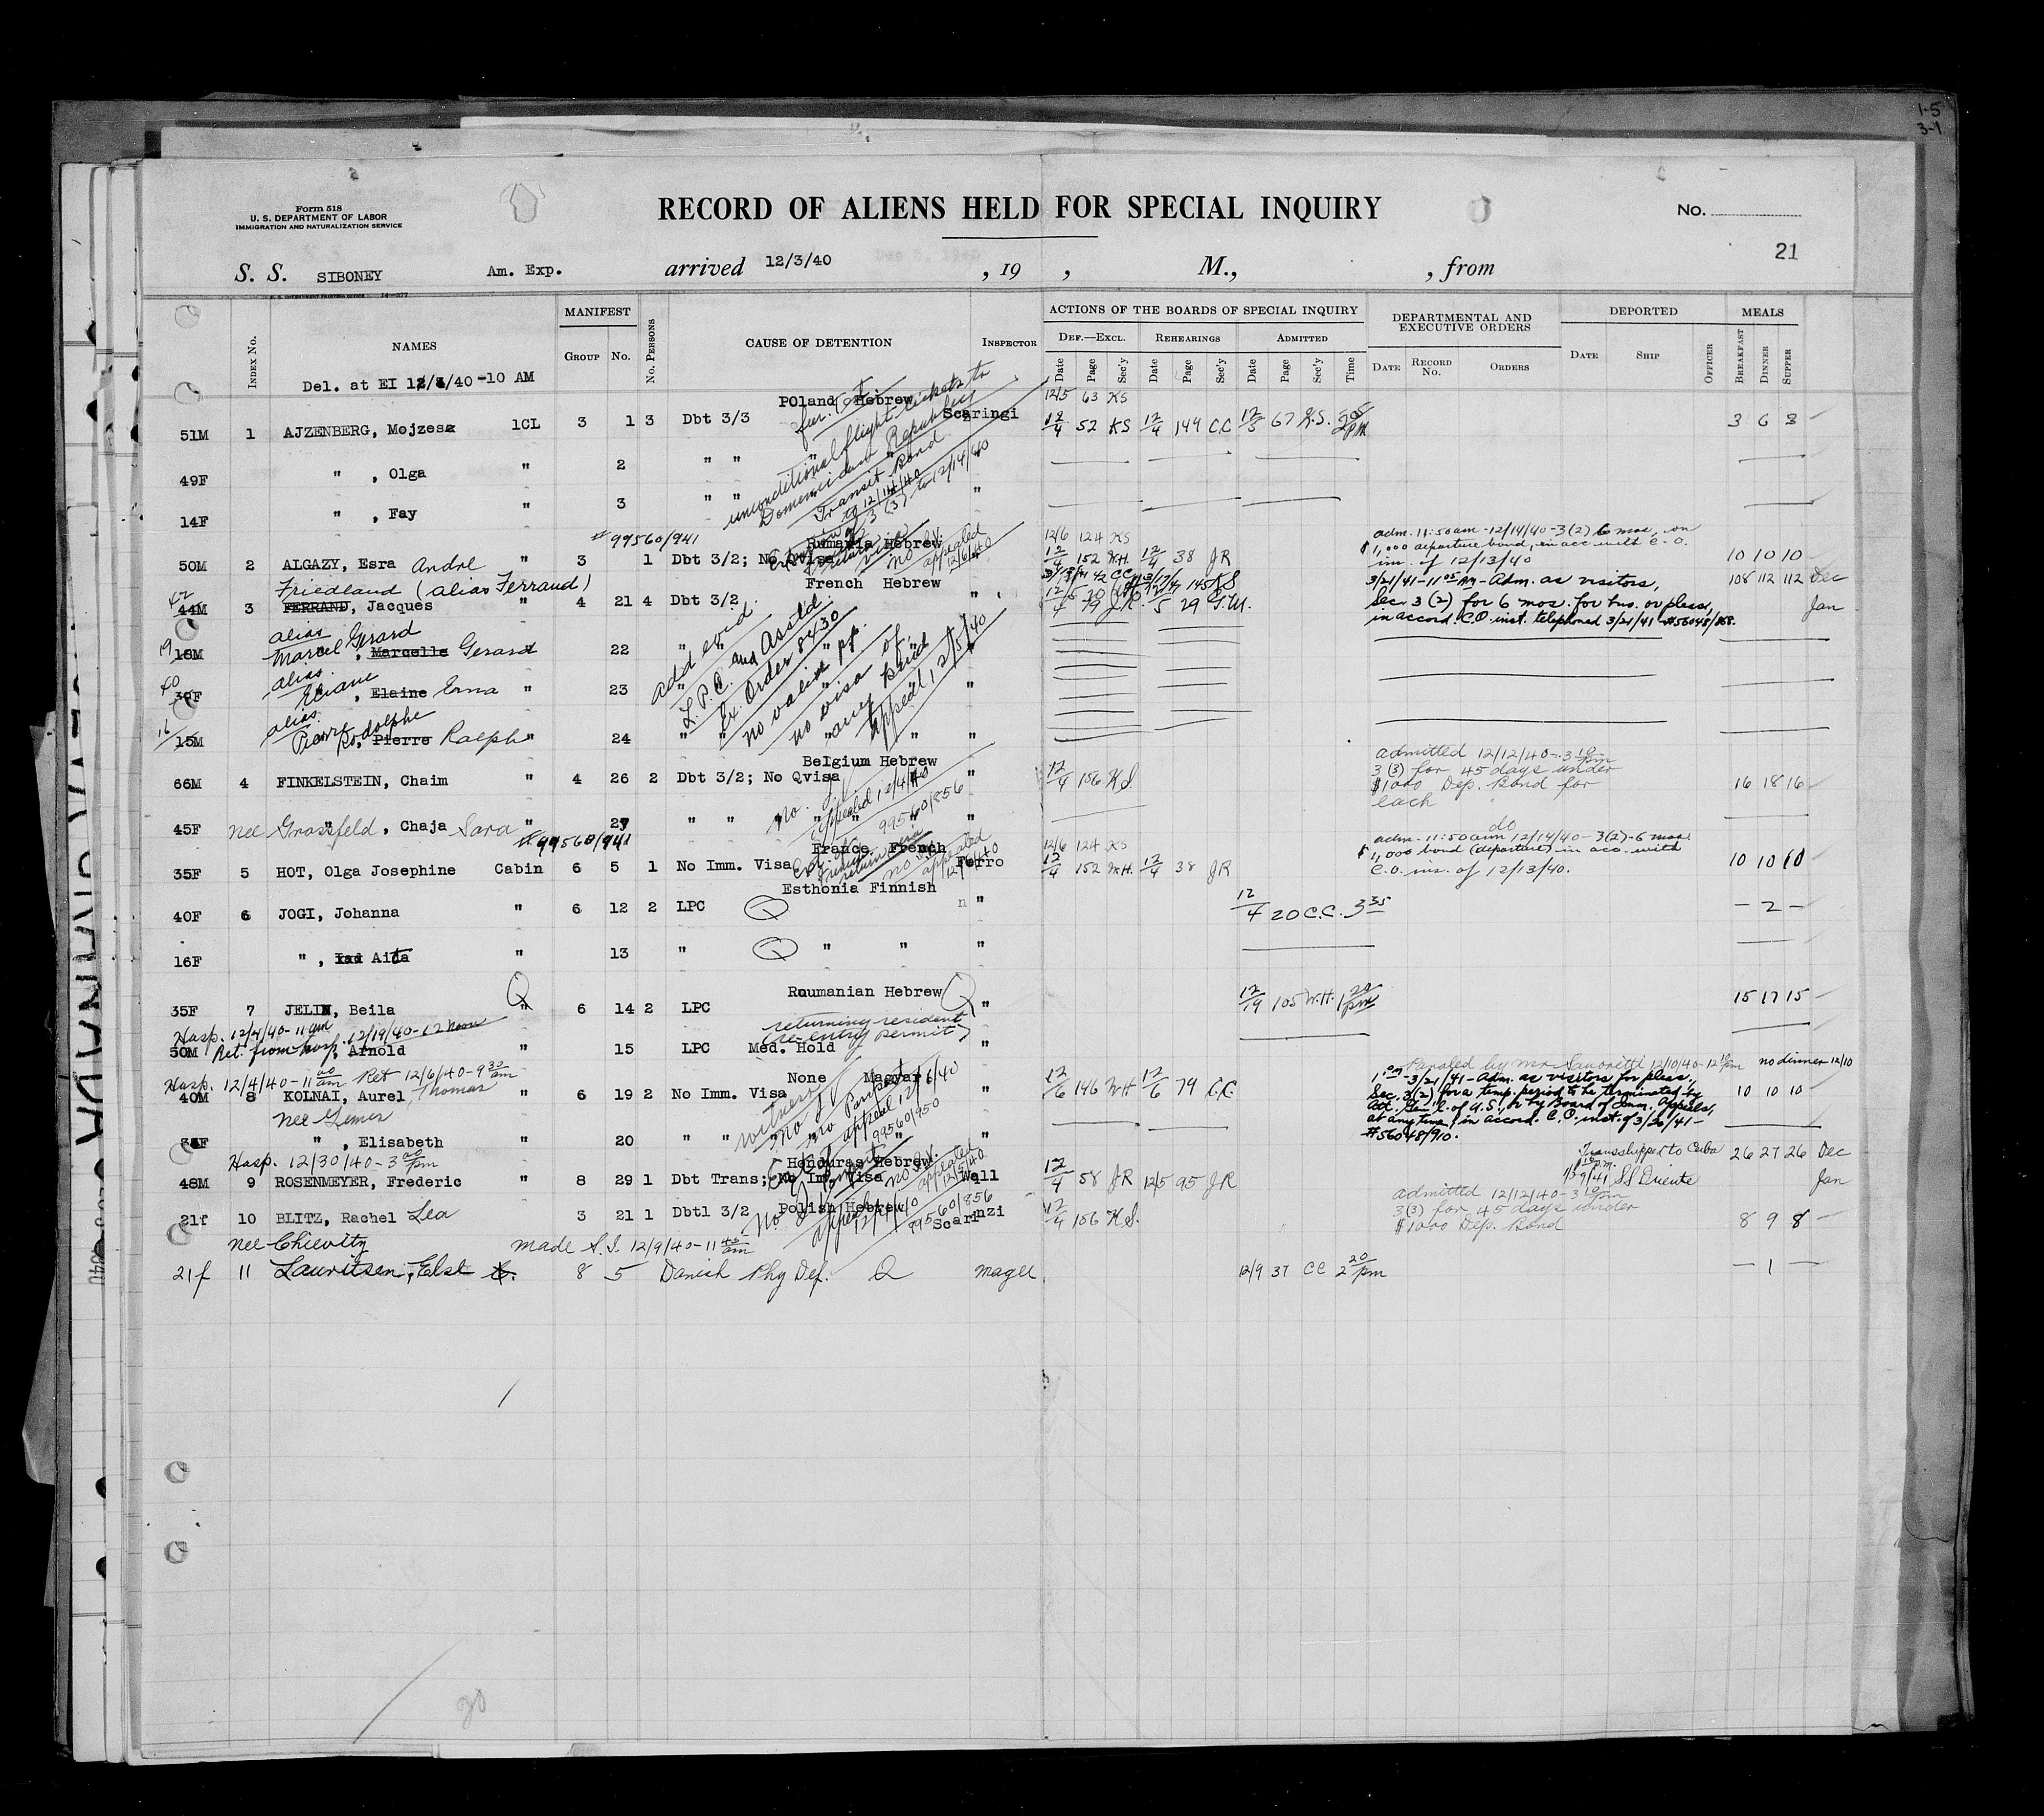 1-5
3-1
Form 518
U. S. DEPARTMENT OF LABOR
IMMIGRATION AND NATURALIZATION SERVICE
RECORD OF ALIENS HELD FOR SPECIAL INQUIRY
No.
21
S. S. SIBONEY Am. Exp. arrived 12/3/40 , 19 , M., , from
MANIFEST ACTIONS OF THE BOARDS OF SPECIAL INQUIRY DEPARTMENTAL AND EXECUTIVE ORDERS DEPORTED MEALS
INDEX No. NAMES GROUP No. No. PERSONS CAUSE OF DETENTION INSPECTOR DEF.—EXCL. REHEARINGS ADMITTED
Date Page Sec'y Date Page Sec'y Date Page Sec'y Time DATE RECORD No. ORDERS DATE SHIP OFFICER BREAKFAST DINNER SUPPER
Del. at EI 12/4/40-10 AM
Poland Hebrew 12/5 63 KS
51M 1 AJZENBERG, Mojzesz 1CL 3 1 3 Dbt 3/3 Scaringi 12/4 52 KS 12/4 149 C.C 12/5 67 K.S. 3 6 3
unconditional flight tickets to
Domenican Republic
Transit Bond
to 12/14/40
3(3) to 12/14/40
49F " , Olga " 2 " " "
14F " , Fay " 3 " " "
#99560/941 Rumania Hebrew 12/6 124 KS
50M 2 ALGAZY, Esra Andre " 3 1 Dbt 3/2; No Qvisa appealed 12/6/40 12/4 152 W.H. 12/4 38 JR
adm. 11:50am-12/14/40-3(2) 6 mos, on
$1,000 departure bond, in acc with C.O.
ins. of 12/13/40
10 10 10
Friedland (alias Ferrand) French Hebrew
42 44M 3 FERRAND, Jacques " 4 21 4 Dbt 3/2 "
3/21/41-11 05 AM-Adm. as visitors,
Sec. 3(2) for 6 mos. for bus. or pleas,
in accord. C.O. inst. telephoned 3/21/41 #56048/868.
108 112 112 Dec
Jan
alias
Marcel Gerard
19 18M " , Marcelle Gerard " 22 " "
add evid
L.P.C. and Asstd.
Ex. Order 8430
no valid pp.
no visa of
any kind
Appeal 12/5/40
alias
Eliane
40 39F , Elaine Erna " 23 " "
alias
Pierre Rodolphe
16 15M , Pierre Ralph " 24 " " "
Belgium Hebrew
66M 4 FINKELSTEIN, Chaim " 4 26 2 Dbt 3/2; No Qvisa " 12/4 156 K.S.
appealed 12/4/40
99560/856
admitted 12/12/40-3 10 pm
3(3) for 45 days under
$1000 Dep. Bond for
each
16 18 16
45F nee Grossfeld, Chaja Sara " 27 " " " do
#99560/941 France French 12/6 124 KS
35F 5 HOT, Olga Josephine Cabin 6 5 1 No Imm. Visa appealed 12/6/40 Ferro 12/4 152 W.H. 12/4 38 JR
adm. 11:50am 12/14/40-3(2)-6 mos.
$1,000 bond (departure) in acc. with
C.O. ins. of 12/13/40.
10 10 10
Esthonia Finnish
40F 6 JOGI, Johanna " 6 12 2 LPC Q " 12/4 20 C.C. 3 35 — 2 —
16F " , Aita " 13 " Q " " "
Roumanian Hebrew
35F 7 JELIN, Beila Q " 6 14 2 LPC Q " 12/19 105 W.H. 1 20 pm 15 17 15
returning resident
(re-entry permit)
Hosp. 12/4/40-11 am
Ret. from hosp. 12/19/40-12 noon
50M , Arnold " 15 LPC Med. Hold "
Hosp. 12/4/40-11 00 am Ret 12/6/40-9 30 am
None Magyar
40M 8 KOLNAI, Aurel Thomas " 6 19 2 No Imm. Visa " 12/6 146 WH 12/6 79 C.C.
appeal 12/6/40
99560/950
Paroled by Mr. 12/10/40-12 10 pm no dinner 12/10
1 pm-3/21/41-Adm. as visitors for pleas,
Sec. 3(2) for a temp. period to be terminated by
Att. Gen'l. of U.S., or by Board of Imm. Appeals,
at any time, in accord. C.O. inst. of 3/20/41-
#56048/910.
10 10 10
nee Gemes
" , Elisabeth " 20 " " "
Hosp. 12/30/40-3 00 pm
Honduras Hebrew
48M 9 ROSENMEYER, Frederic " 8 29 1 Dbt Trans; No Im. Visa Wall 12/4 58 JR 12/5 95 JR
appealed 12/5/40
Transshipped to Cuba
SS Oriente
26 27 26 Dec
Jan
Polish Hebrew
21f 10 BLITZ, Rachel Lea 3 21 1 Dbtl 3/2 Scarinzi 12/4 156 K.S.
appeal 12/4/40
99560/856
admitted 12/12/40-3 10 pm
3(3) for 45 days under
$1000 Dep. Bond
8 9 8
nee Chievitz made S.I. 12/9/40-11 45 am
21f 11 Lauritsen, Else 8 5 Danish Phy Def. Q Magee 12/9 37 CC 2 20 pm — 1 —
20